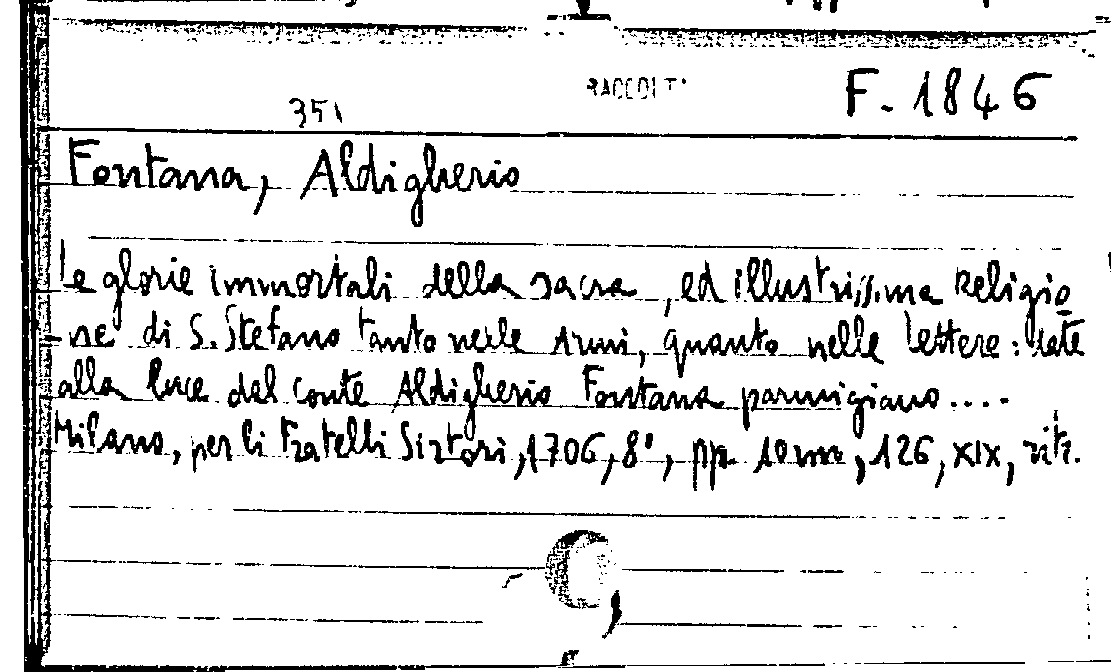 RACCOLT
F. 1846
351
Fontana, Aldigherio
Le glorie immortali della sacra, ed illustrissima Religio
-ne di S. Stefano tanto nelle armi, quanto nelle lettere: date
alla luce dal conte Aldigherio Fontana parmigiano....
Milano, per li Fratelli Sirtori, 1706, 8°, pp. 10 nn, 126, XIX, ritr.